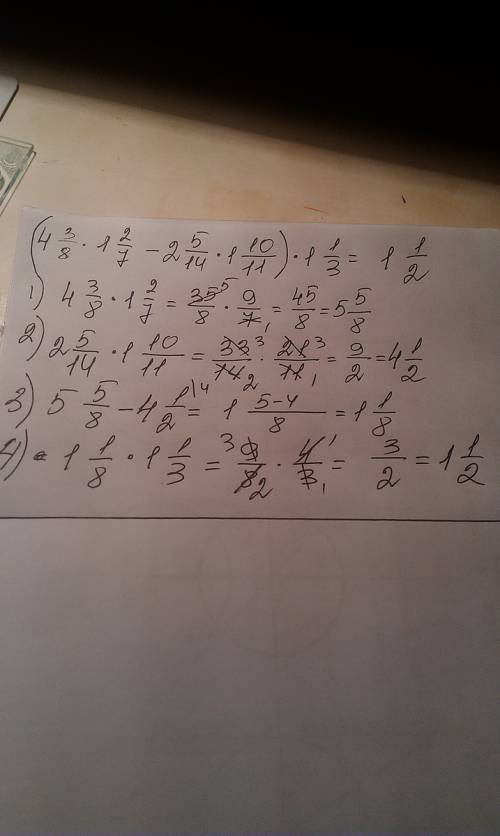 (4 3/8 · 1 2/7 − 2 5/14 · 1 10/11) · 1 1/3 = 1 1/2
1) 4 3/8 · 1 2/7 = 35/8 5 · 9/7 1 = 45/8 = 5 5/8
2) 2 5/14 · 1 10/11 = 33/14 3 2 · 21/11 3 1 = 9/2 = 4 1/2
3) 5 5/8 − 4 1/2 \4 = 1 5-4/8 = 1 1/8
4) 1 1/8 · 1 1/3 = 3 9/8 2 · 4/3 1 1 = 3/2 = 1 1/2